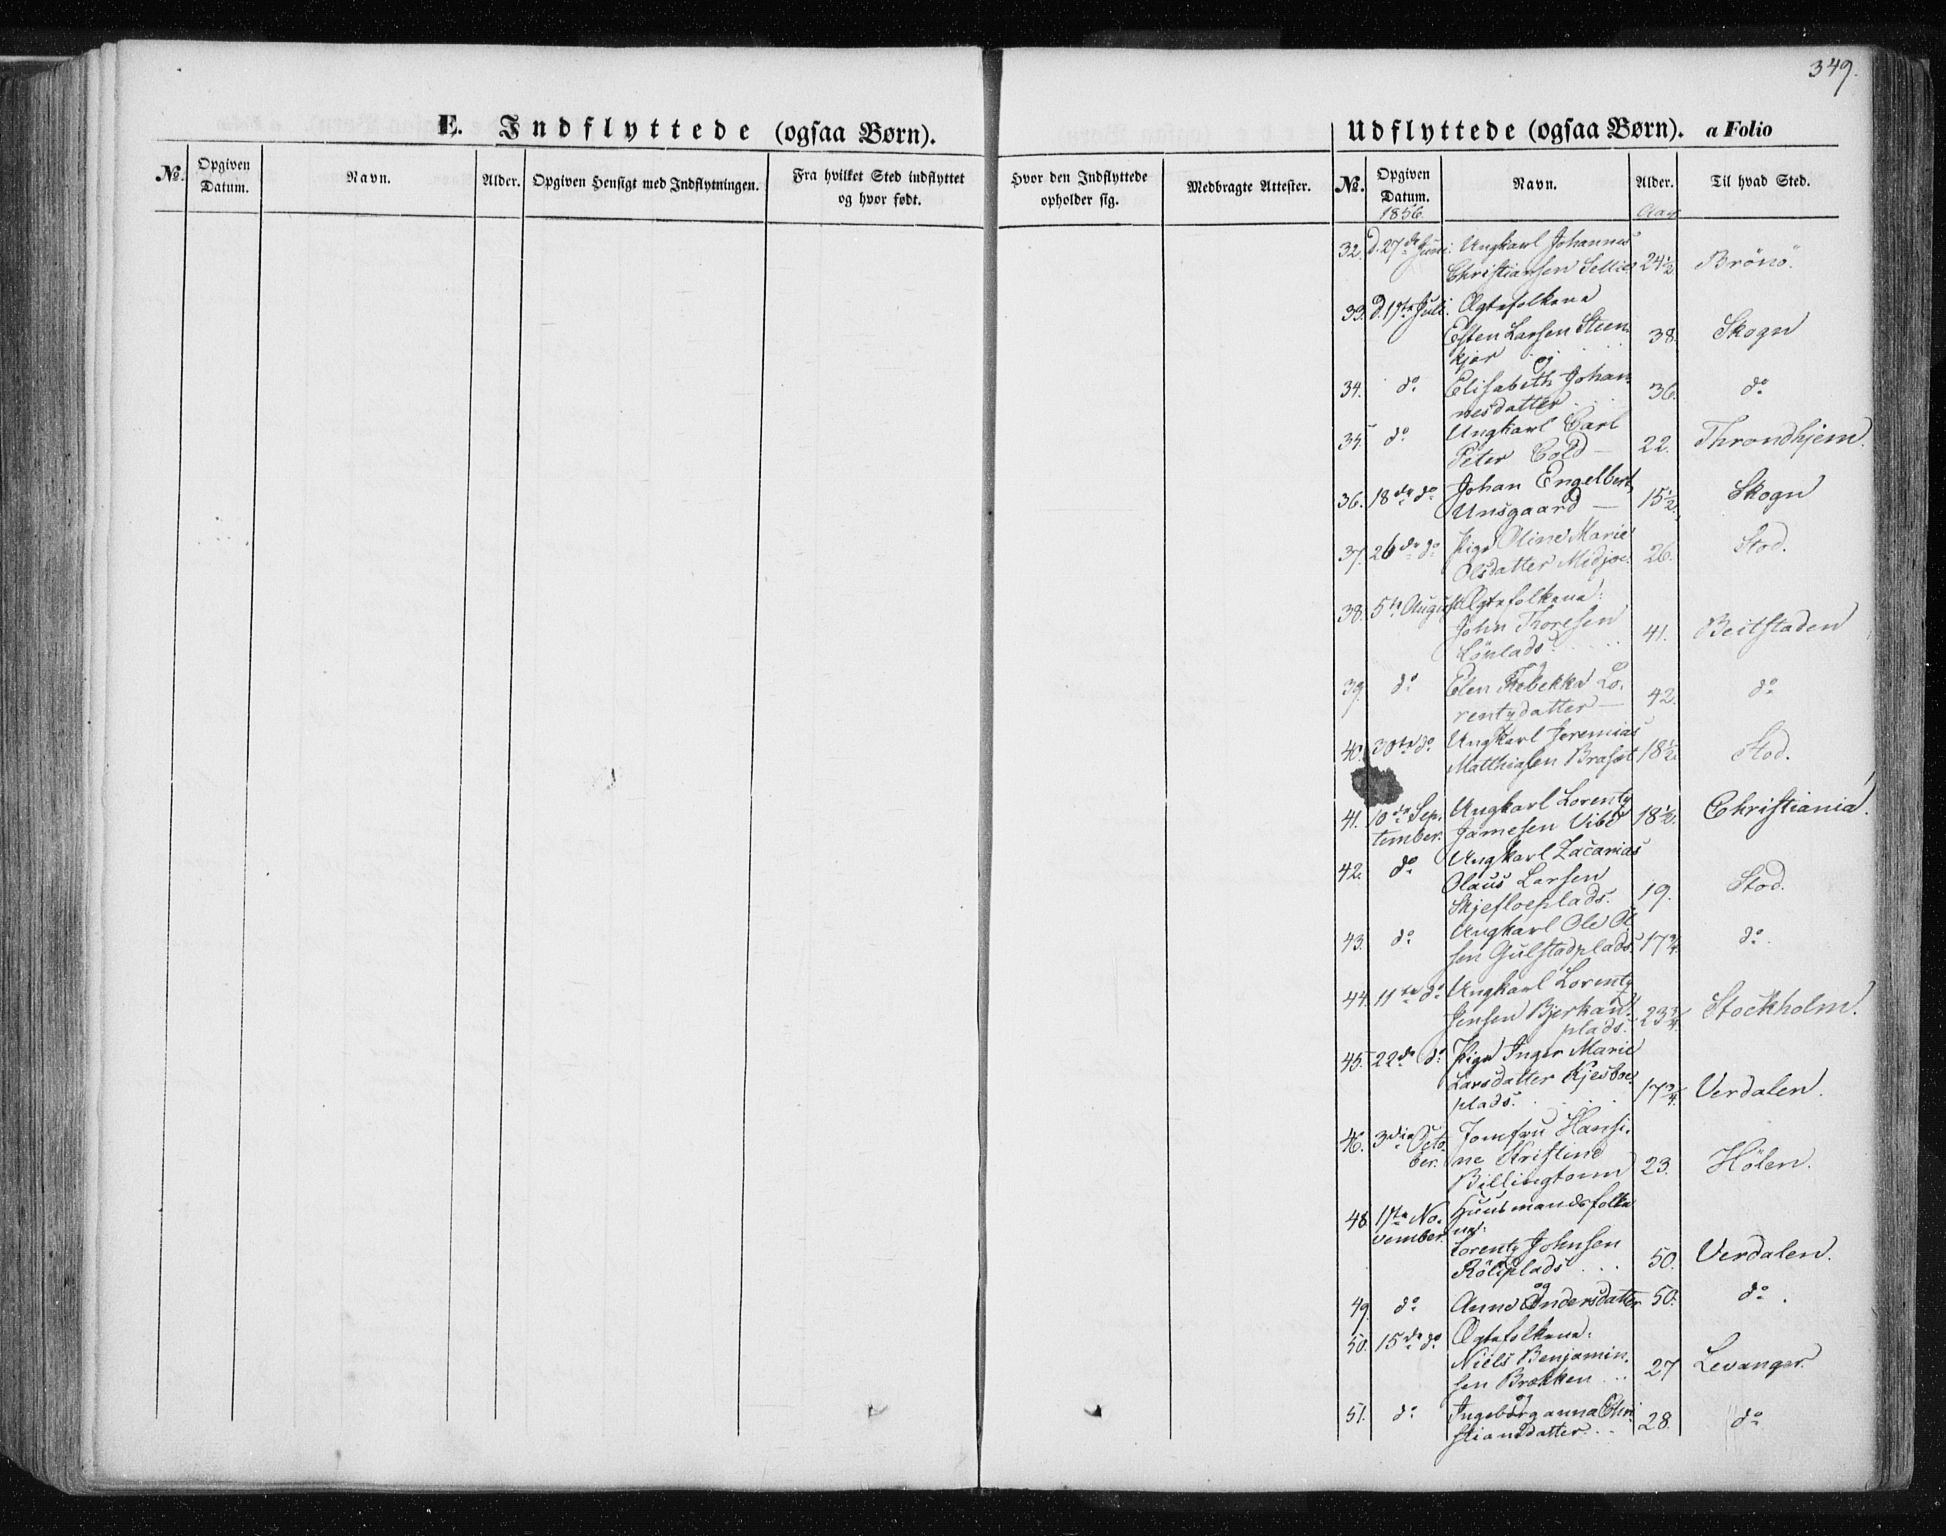 349.
E. Indflyttede (ogsaa Børn).
Udflyttede (ogsaa Børn). a Folio
No. Opgiven Datum. Navn. Alder. Opgiven Hensigt med Indflytningen. Fra hvilket Sted indflyttet og hvor født. Hvor den Indflyttede opholder sig. Medbragte Attester. No. Opgiven Datum. Navn. Alder. Til hvad Sted.
1856. Aar
32. d. 27de Juni. Ungkarl Johannes
Christiansen Sellie 24½ Brönö.
33. d. 17te Juli. Ægtefolkene
Esten Larsen Steen- 38. Skogn
kjær og
34. do Elisabeth Johan- 36. do
nesdatter
35. do Ungkarl Carl
Peter Cold — 22. Throndhjem.
36. 18de do Johan Engelbert
Unsgaard — 15½ Skogn
37. 26de do Pige Oline Marie
Olsdatter Midjoe. 26. Stod.
38. 5te August Ægtefolkene:
John Thoresen 41. Beitstaden
og
39. do Elen Rebekka Lo-
rentzdatter — 42. do
40. 30te do Ungkarl Jeremias
Matthiasen Braset 18½ Stod.
41. 10de Sep- Ungkarl Lorentz
tember. Jamesen Vibe 18½. Christiania.
42. do Ungkarl Zacarias
Olaus Larsen
Skjefloeplads. 19. Stod.
43. do Ungkarl Ole Ol-
sen Gulstadplads. 17¾ do.
44. 11te do Ungkarl Lorentz
Jensen Bjerkan- 23¾ Stockholm.
plads.
45. 22de do Pige Inger Marie
Larsdatter Kjesboe- 17¾ Verdalen.
plads.
46. 3die Octo- Jomfru Hansi-
ber. ne Kristine
Billingtonn 23. Hölen.
48. 17te No- Huusmandsfolke-
vember. ne:
Lorentz Johnsen
Röliplads 50. Verdalen.
og
49. do Anne Andersdatter 50. do.
50. 15de do Ægtefolkene:
Niels Benjamin-
sen Brækken 27 Levanger.
og
51. do Ingeborganna Chri-
stiansdatter. 28. do